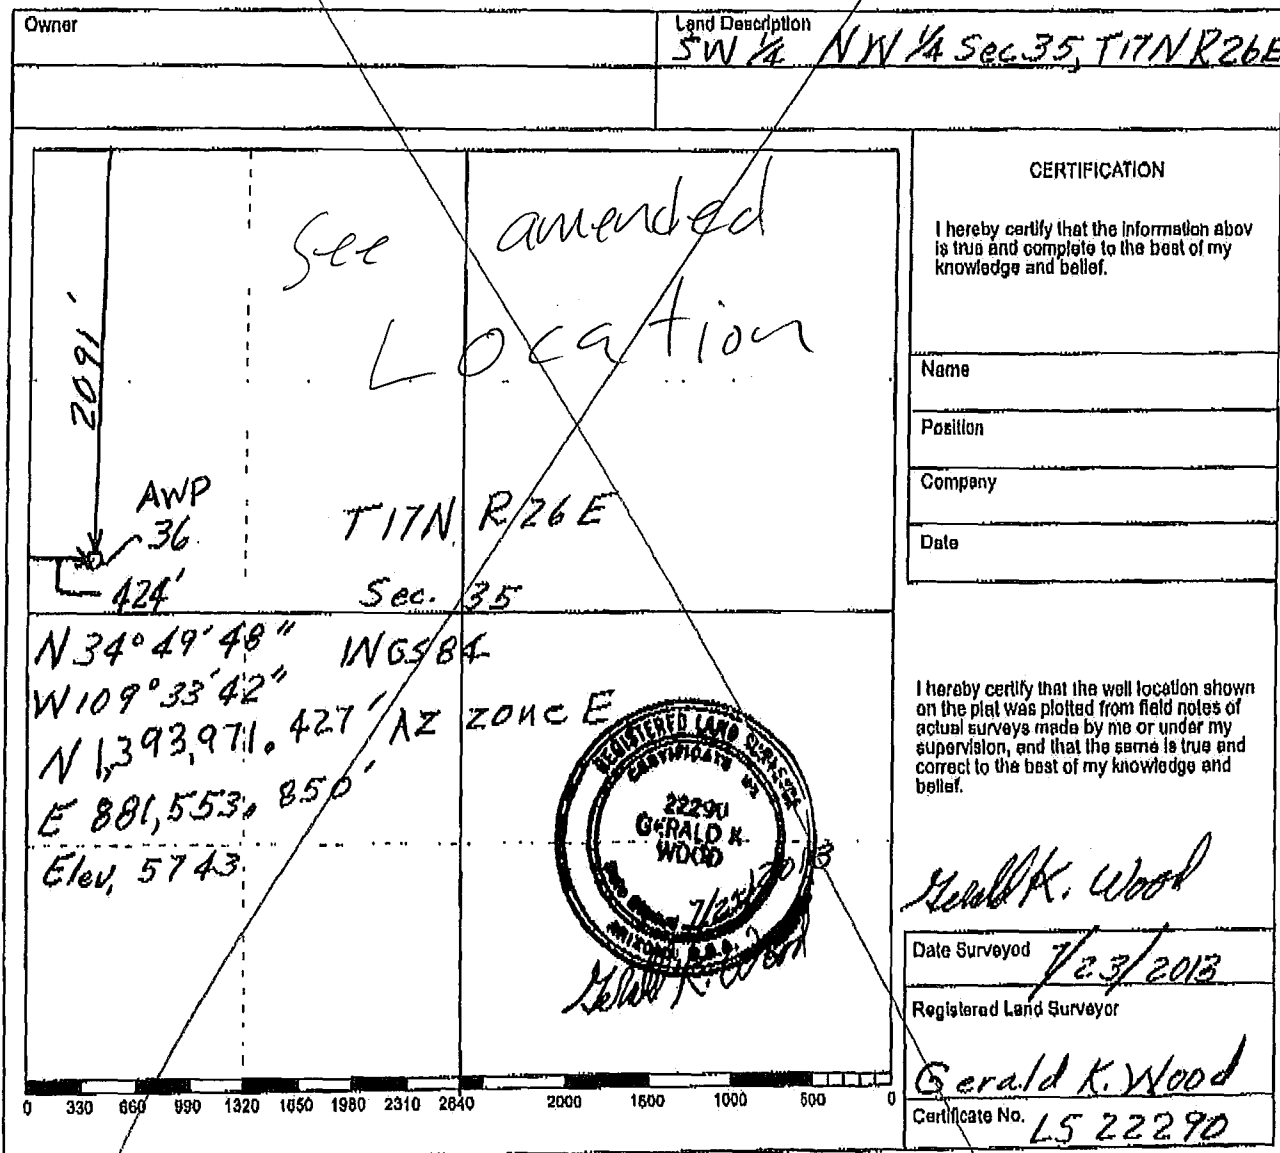 Owner
Land Description
SW 1/4 NW 1/4 Sec. 35, T17N R26E
See amended
Location
2091'
AWP
36
424'
T17N, R26E
Sec. 35
N 34° 49' 48" WGS84
W 109° 33' 42"
N 1,393,971.427' AZ ZONE E
E 881,553.850'
Elev. 5743
REGISTERED LAND SURVEYOR
CERTIFICATE NO.
22290
GERALD K
WOOD
7/23/2013
ARIZONA, U.S.A.
Gerald K. Wood
0 330 660 990 1320 1650 1980 2310 2640 2000 1500 1000 500 0
CERTIFICATION
I hereby certify that the information abov
is true and complete to the best of my
knowledge and belief.
Name
Position
Company
Date
I hereby certify that the well location shown
on the plat was plotted from field notes of
actual surveys made by me or under my
supervision, and that the same is true and
correct to the best of my knowledge and
belief.
Gerald K. Wood
Date Surveyed 7/23/2013
Registered Land Surveyor
Gerald K. Wood
Certificate No. LS 22290